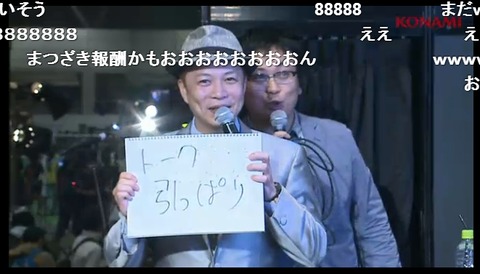 いそう 88888 まだw
KONAMI
8888888 ええ え
まつざき報酬かもおおおおおおおおおん
wwww
お
トーク
引っぱり